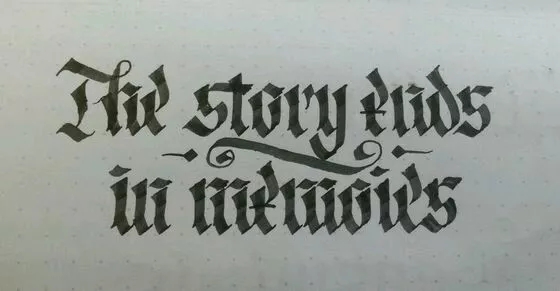 The story ends
in memories